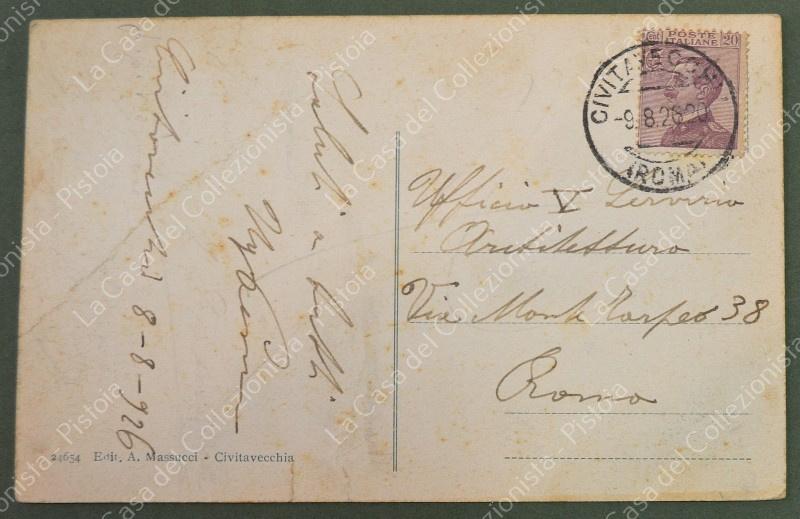 POSTE
ITALIANE 20
CIVITAVECCHIA
-9.8.26 20
(ROMA)
Civitavecchia 8-8-926
Saluti a tutti
Ufficio V Servizio
Architettura
Via Monte Tarpeo 38
Roma
24654 Edit. A. Massucci - Civitavecchia
La Casa del Collezionista - Pistoia